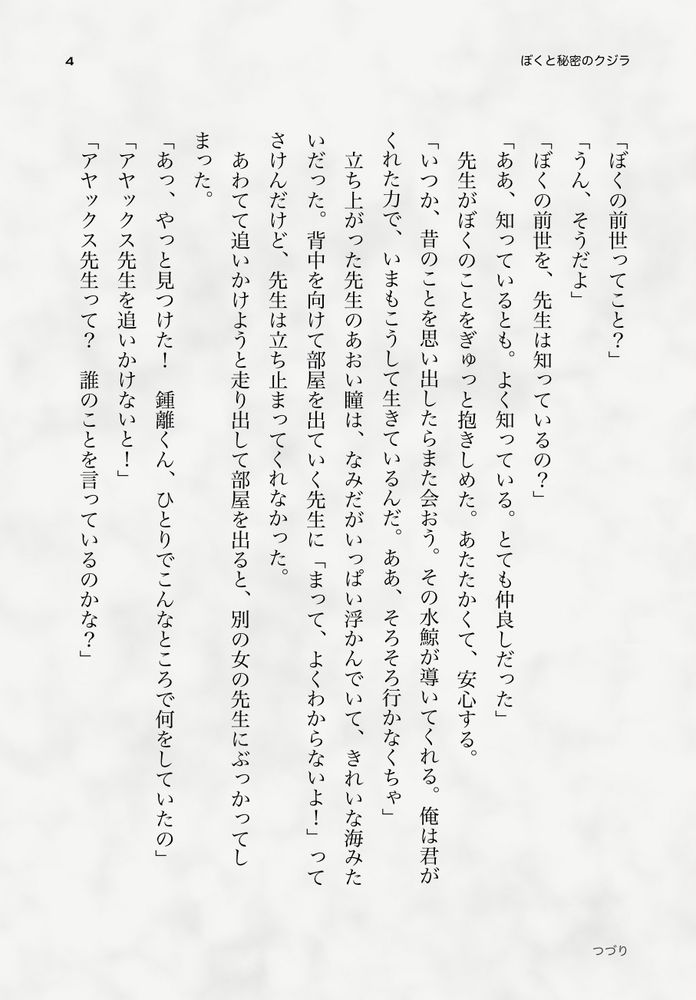 4
ぼくと秘密のクジラ
「ぼくの前世ってこと？」
「うん、そうだよ」
「ぼくの前世を、先生は知っているの？」
「ああ、知っているとも。よく知っている。とても仲良しだった」
先生がぼくのことをぎゅっと抱きしめた。あたたかくて、安心する。
「いつか、昔のことを思い出したらまた会おう。その水鯨が導いてくれる。俺は君が
くれた力で、いまもこうして生きているんだ。ああ、そろそろ行かなくちゃ」
立ち上がった先生のあおい瞳は、なみだがいっぱい浮かんでいて、きれいな海みた
いだった。背中を向けて部屋を出ていく先生に「まって、よくわからないよ！」って
さけんだけど、先生は立ち止まってくれなかった。
あわてて追いかけようと走り出して部屋を出ると、別の女の先生にぶっかってし
まった。
「あっ、やっと見つけた！　鍾離くん、ひとりでこんなところで何をしていたの」
「アヤックス先生を追いかけないと！」
「アヤックス先生って？　誰のことを言っているのかな？」
つづり